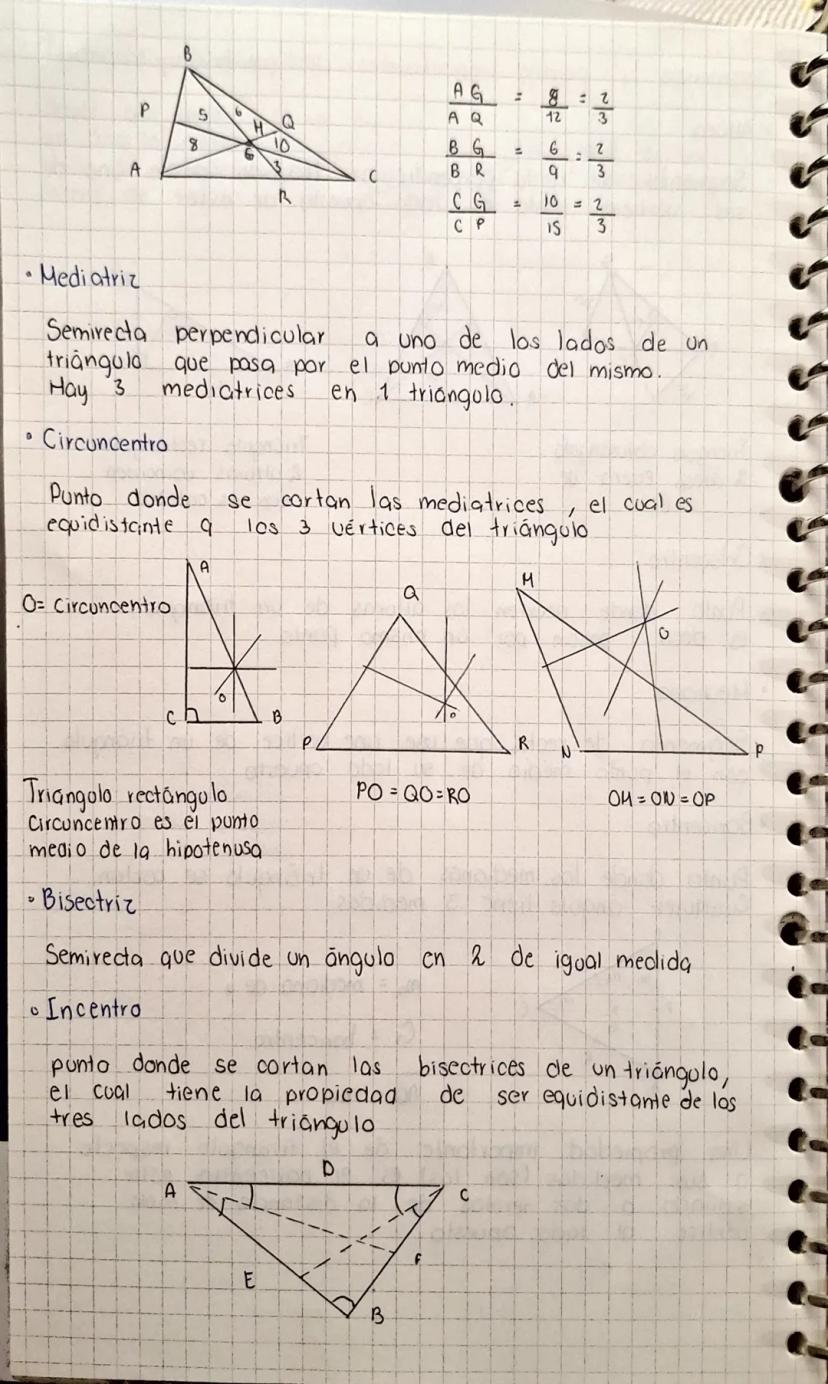 B
P 5 6 H Q
8 G 10
A 3 C
R
AG/AQ = 8/12 = 2/3
BG/BR = 6/9 = 2/3
CG/CP = 10/15 = 2/3
• Mediatriz
Semirecta perpendicular a uno de los lados de un
triángulo que pasa por el punto medio del mismo.
Hay 3 mediatrices en 1 triángulo.
• Circuncentro
Punto donde se cortan las mediatrices, el cual es
equidistante a los 3 vértices del triángulo
O= Circuncentro
A
O
C B
Q
O
P R
M
O
N P
Triangulo rectángulo
circuncentro es el punto
medio de la hipotenusa
PO = QO = RO
OM = ON = OP
• Bisectriz
Semirecta que divide un ángulo en 2 de igual medida
• Incentro
punto donde se cortan las bisectrices de un triángulo,
el cual tiene la propiedad de ser equidistante de los
tres lados del triángulo
D
A C
F
E
B